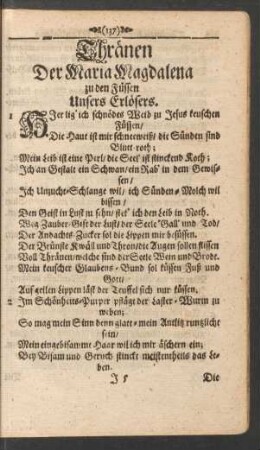 (137)
Thränen
Der Maria Magdalena
zu den Füssen
Unsers Erlösers.
1 HJer lig' ich schnödes Weib zu Jesus keuschen
Füssen/
Die Haut ist mir schneeweiß/ die Sünden sind
Blutt-roth;
Mein Leib ist eine Perl/ die Seel' ist stinckend Koth;
Ich an Gestalt ein Schwan/ ein Rab' in dem Gewis-
sen/
Ich Unzucht-Schlange wil/ ich Sünden-Molch wil
büssen/
Den Geist in Lust zu sehn/ steck' ich den Leib in Noth.
Weg Zauber-Gift der Lust/ der Seele Gall' und Tod/
Der Andachts-Zucker sol die Lippen mir besüssen.
Der Brünste Kwäll und Thron/ die Augen sollen flissen
Voll Thränen/ welche sind der Seele Wein und Brodt.
Mein keuscher Glaubens-Bund sol küssen Fuß und
Gott/
Auf geilen Lippen läst der Teuffel sich nur küssen.
2 Im Schönheits-Purper pflägt der Laster-Wurm zu
weben;
So mag mein Sinn denn glatt-mein Antlitz runtzlicht
sein/
Mein eingebisamme Haar wil ich mir äschern ein;
Bey Bisam und Geruch stinckt meistentheils das Le-
ben.
J 5 Die